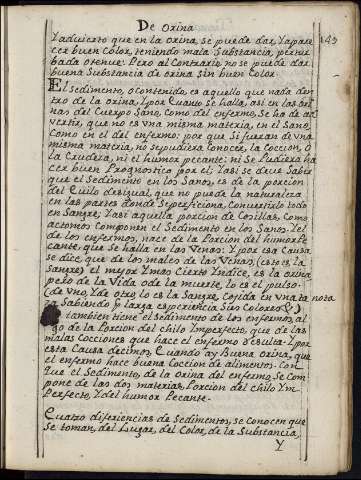 De Orina
145
Y advierto que en la orina, se puede dar, Y apare
cer buen Color, teniendo mala Substancia, pertur
bada o tenue: Pero al Contrario no se puede dar
buena Substancia de orina sin buen Color.
El sedimento, o contenido, es aquello que nada den
tro de la orina, Y por Cuanto se halla, asi en las ori
nas del Cuerpo Sano, Como del enfermo, Se ha de ad
vertir, que no es una misma materia, en el Sano,
Como en el del enfermo: por que si fueran de una
misma materia, no se pudiera Conocer, la Coccion, o
la Crudeza, ni el humor pecante: ni se Pudiera ha
cer buen Prognostico por el; Y asi se deve Saber
que el Sedimento en los Sanos, es de la porcion
del Quilo desigual, que no puede la naturaleza
en las partes donde Se perficiona, Convertirlo todo
en Sangre, Y asi aquella porcion de Cosillas, Como
actomos Componen el Sedimento en los Sanos. Y el
de los enfermos, nace de la Porcion del humor Pe
cante, que se halla en las Venas: Y por esa Causa
se dice, que de los males de las Venas, (esto es, la
Sangre) el mejor Y mas Cierto Yndice, es la orina
pero de la Vida o de la muerte, lo es el pulso.
(de uno, Y de otro, lo es la Sangre, Cojida en una
nota
Sabiendo y larga esperiencia Sus Colores &.)
tambien tiene el sedimento de los enfermos, al
go de la Porcion del chilo Imperfecto, que de las
malas Cocciones que hace el enfermo resulta: Y por
esta Causa decimos, Cuando ay Buena orina, que
el enfermo hace buena Coccion de alimentos. Con
Que el Sedimento, de la orina del enfermo, Se Com
pone de las dos materias, Porcion del chilo Ym
Perfecto, Y del humor Pecante.
Cuatro diferiencias de Sedimentos, se conocen que
Se toman, del Lugar, del Color, de la Substancia,
Y